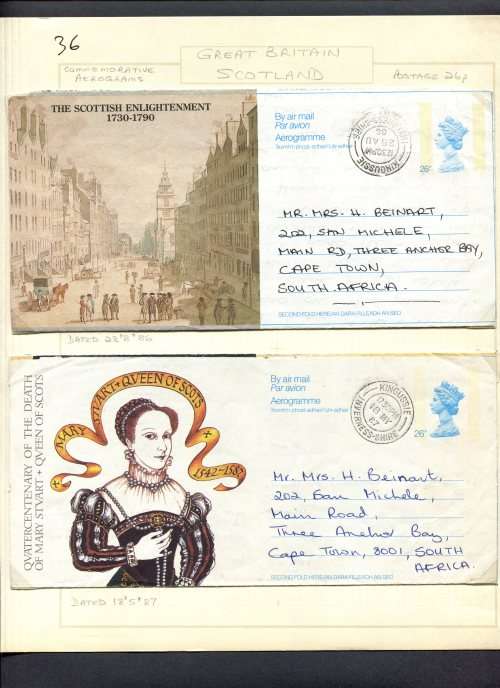 36
GREAT BRITAIN
SCOTLAND
COMMEMORATIVE
AEROGRAMS
POSTAGE 26p
THE SCOTTISH ENLIGHTENMENT
1730-1790
By air mail
Par avion
Aerogramme
KINGUSSIE
26p
MR. MRS. H. BEINART,
202, SAN MICHELE,
MAIN RD, THREE ANCHOR BAY,
CAPE TOWN,
SOUTH AFRICA.
SECOND FOLD HERE
DATED 22"8"86
QVATERCENTENARY OF THE DEATH
OF MARY STVART + QVEEN OF SCOTS
MARY STVART + QVEEN OF SCOTS
1542-1587
By air mail
Par avion
Aerogramme
KINGUSSIE
INVERNESS-SHIRE
26p
Mr. Mrs. H. Beinart,
202, San Michele,
Main Road,
Three Anchor Bay,
Cape Town, 8001, SOUTH
AFRICA.
SECOND FOLD HERE
DATED 18"5"87